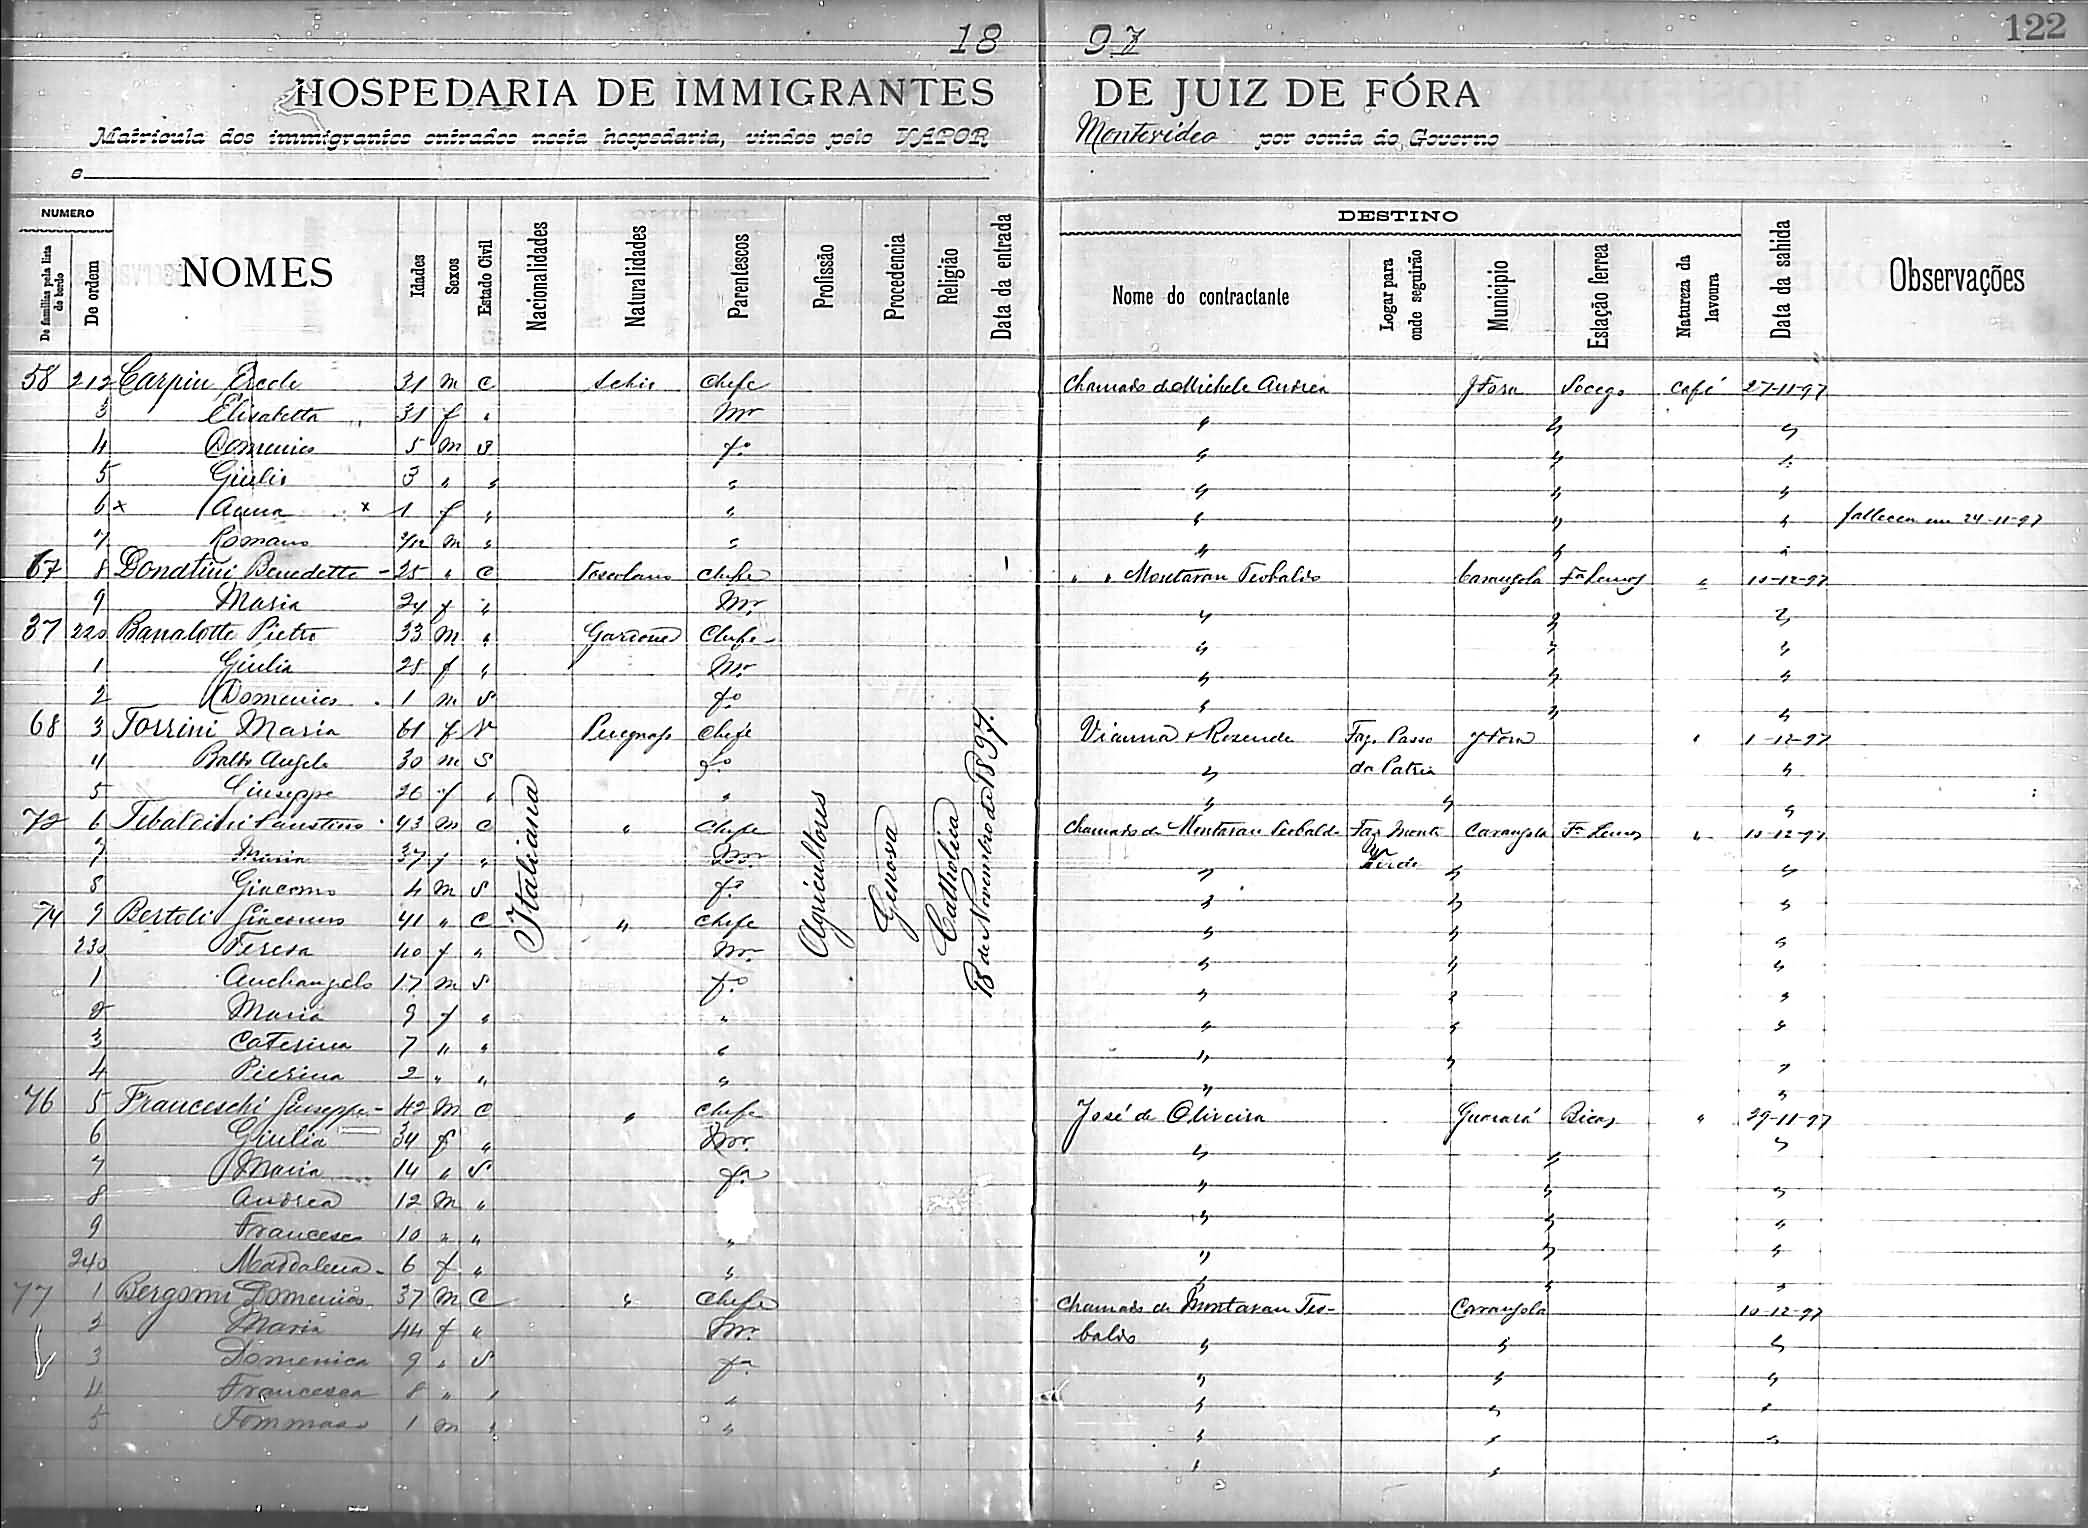 122
18 97
HOSPEDARIA DE IMMIGRANTES DE JUIZ DE FÓRA
Matricula dos immigrantes entrados nesta hospedaria, vindos pelo VAPOR Montevideo por conta do Governo
e
NUMERO DESTINO
De familias pela lista de bordo De ordem NOMES Idades Sexos Estado Civil Nacionalidades Naturalidades Parentescos Profissão Procedencia Religião Data da entrada Nome do contractante Logar para onde seguirão Municipio Estação ferrea Natureza da lavoura Data da sahida Observações
58 212 Carpin 31 m C Schio Chefe Chamado de Michele Andrea J Fora Socego Café 27-11-97
3 Elisabetta 31 f " Mer " " "
4 Domenico 5 m S fo " " "
5 Giulio 3 " " " " " "
6 x Anna x 1 f " " " " " falleceu em 24-11-97
7 Romano 3/12 m " " " " "
67 8 Donatini Benedetto - 25 " C Toscolano Chefe " " Montavan Teobaldo Carangola Fa Lemos " 10-12-97
9 Maria 24 f " Mer " " "
37 220 Pietro 33 m " Chefe " " "
1 Giulia 28 f " Mer " " "
2 Domenico 1 m S fo " " "
68 3 Torrini Maria 61 f V Chefe Vianna & Rezende Faz. Passo J Fora " 1-12-97
4 Angelo 30 m S fo " da Patria "
5 Giuseppe 26 f " " " " "
72 6 Faustino 43 m C " Chefe Chamado de Montavan Teobaldo Faz. Monte Carangola Fa Lemos " 10-12-97
7 Maria 37 f " Mer " Verde " "
8 Giacomo 4 m S fo " " "
74 9 Bertoli Giacomo 41 " C " Chefe " " "
230 Teresa 40 f " Mer " " "
1 Archangelo 17 m S fo " " "
2 Maria 9 f " " " " "
3 Caterina 7 " " " " " "
4 Pierina 2 " " " " "
76 5 Franceschi Giuseppe - 42 m C " Chefe José de Oliveira Guarará Bicas " 29-11-97
6 Giulia 34 f " Mer " " "
7 Maria 14 " S fa " " "
8 Andrea 12 m " " " "
9 Francesco 10 " " " " " "
240 Maddalena - 6 f " " " " "
77 1 Bergomi Domenico 37 m C " Chefe Chamado de Montavan Teo- Carangola 10-12-97
2 Maria 44 f " Mer baldo " " "
3 Domenica 9 " S fa " " "
4 Francesca 8 " " " " " "
5 Tommaso 1 m " " " " "
Italiana
Agricultores
Genova
Catholica
18 de Novembro de 1897.